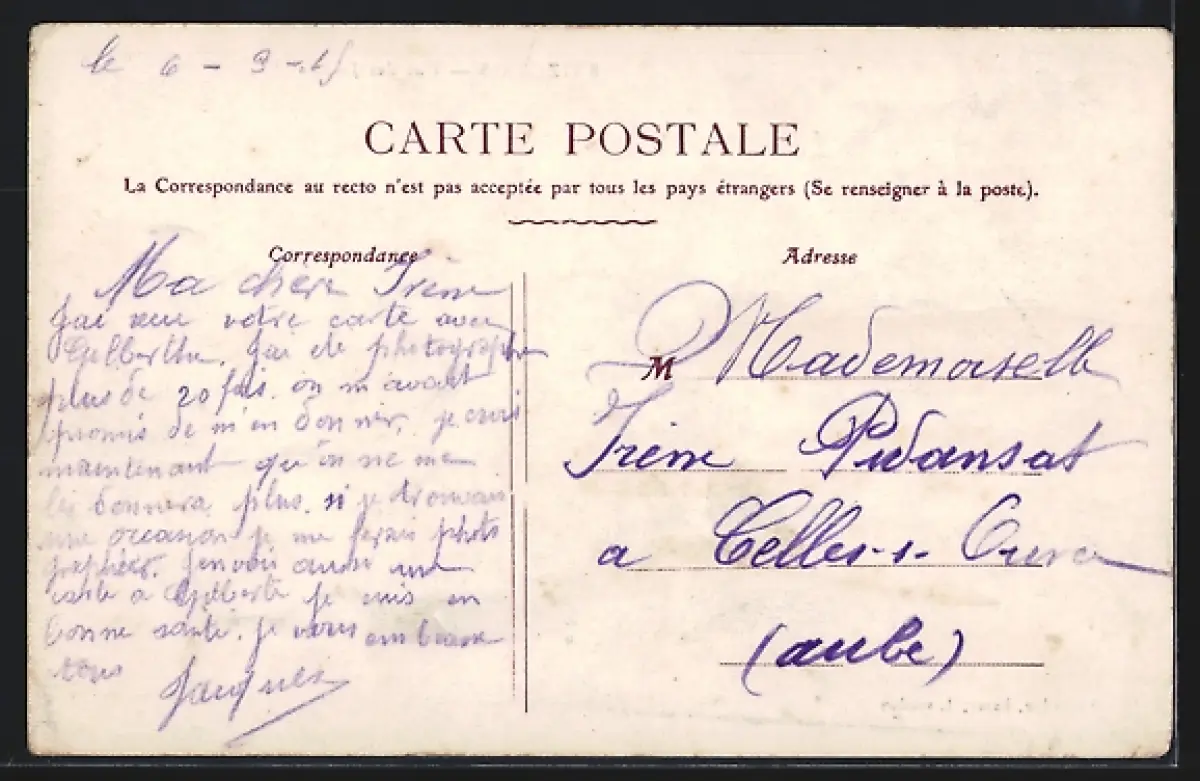 le 6 - 9 - 15
CARTE POSTALE
La Correspondance au recto n'est pas acceptée par tous les pays étrangers (Se renseigner à la poste).
Correspondance
Ma chère Irène
J'ai reçu votre carte avec
Gilberthe. J'ai été photographier
plus de 20 fois. on m'avait
promis de m'en donner, je crois
maintenant qu'on ne me
les donnera plus. si je trouvais
une occasion je me ferais photo
graphier. J'envoie aussi une
carte a Gilberte je suis en
bonne santé. je vous embrasse
tous
Jacques
Adresse
M Mademoiselle
Irène Pidansat
a Celles-s-Ource
(aube)